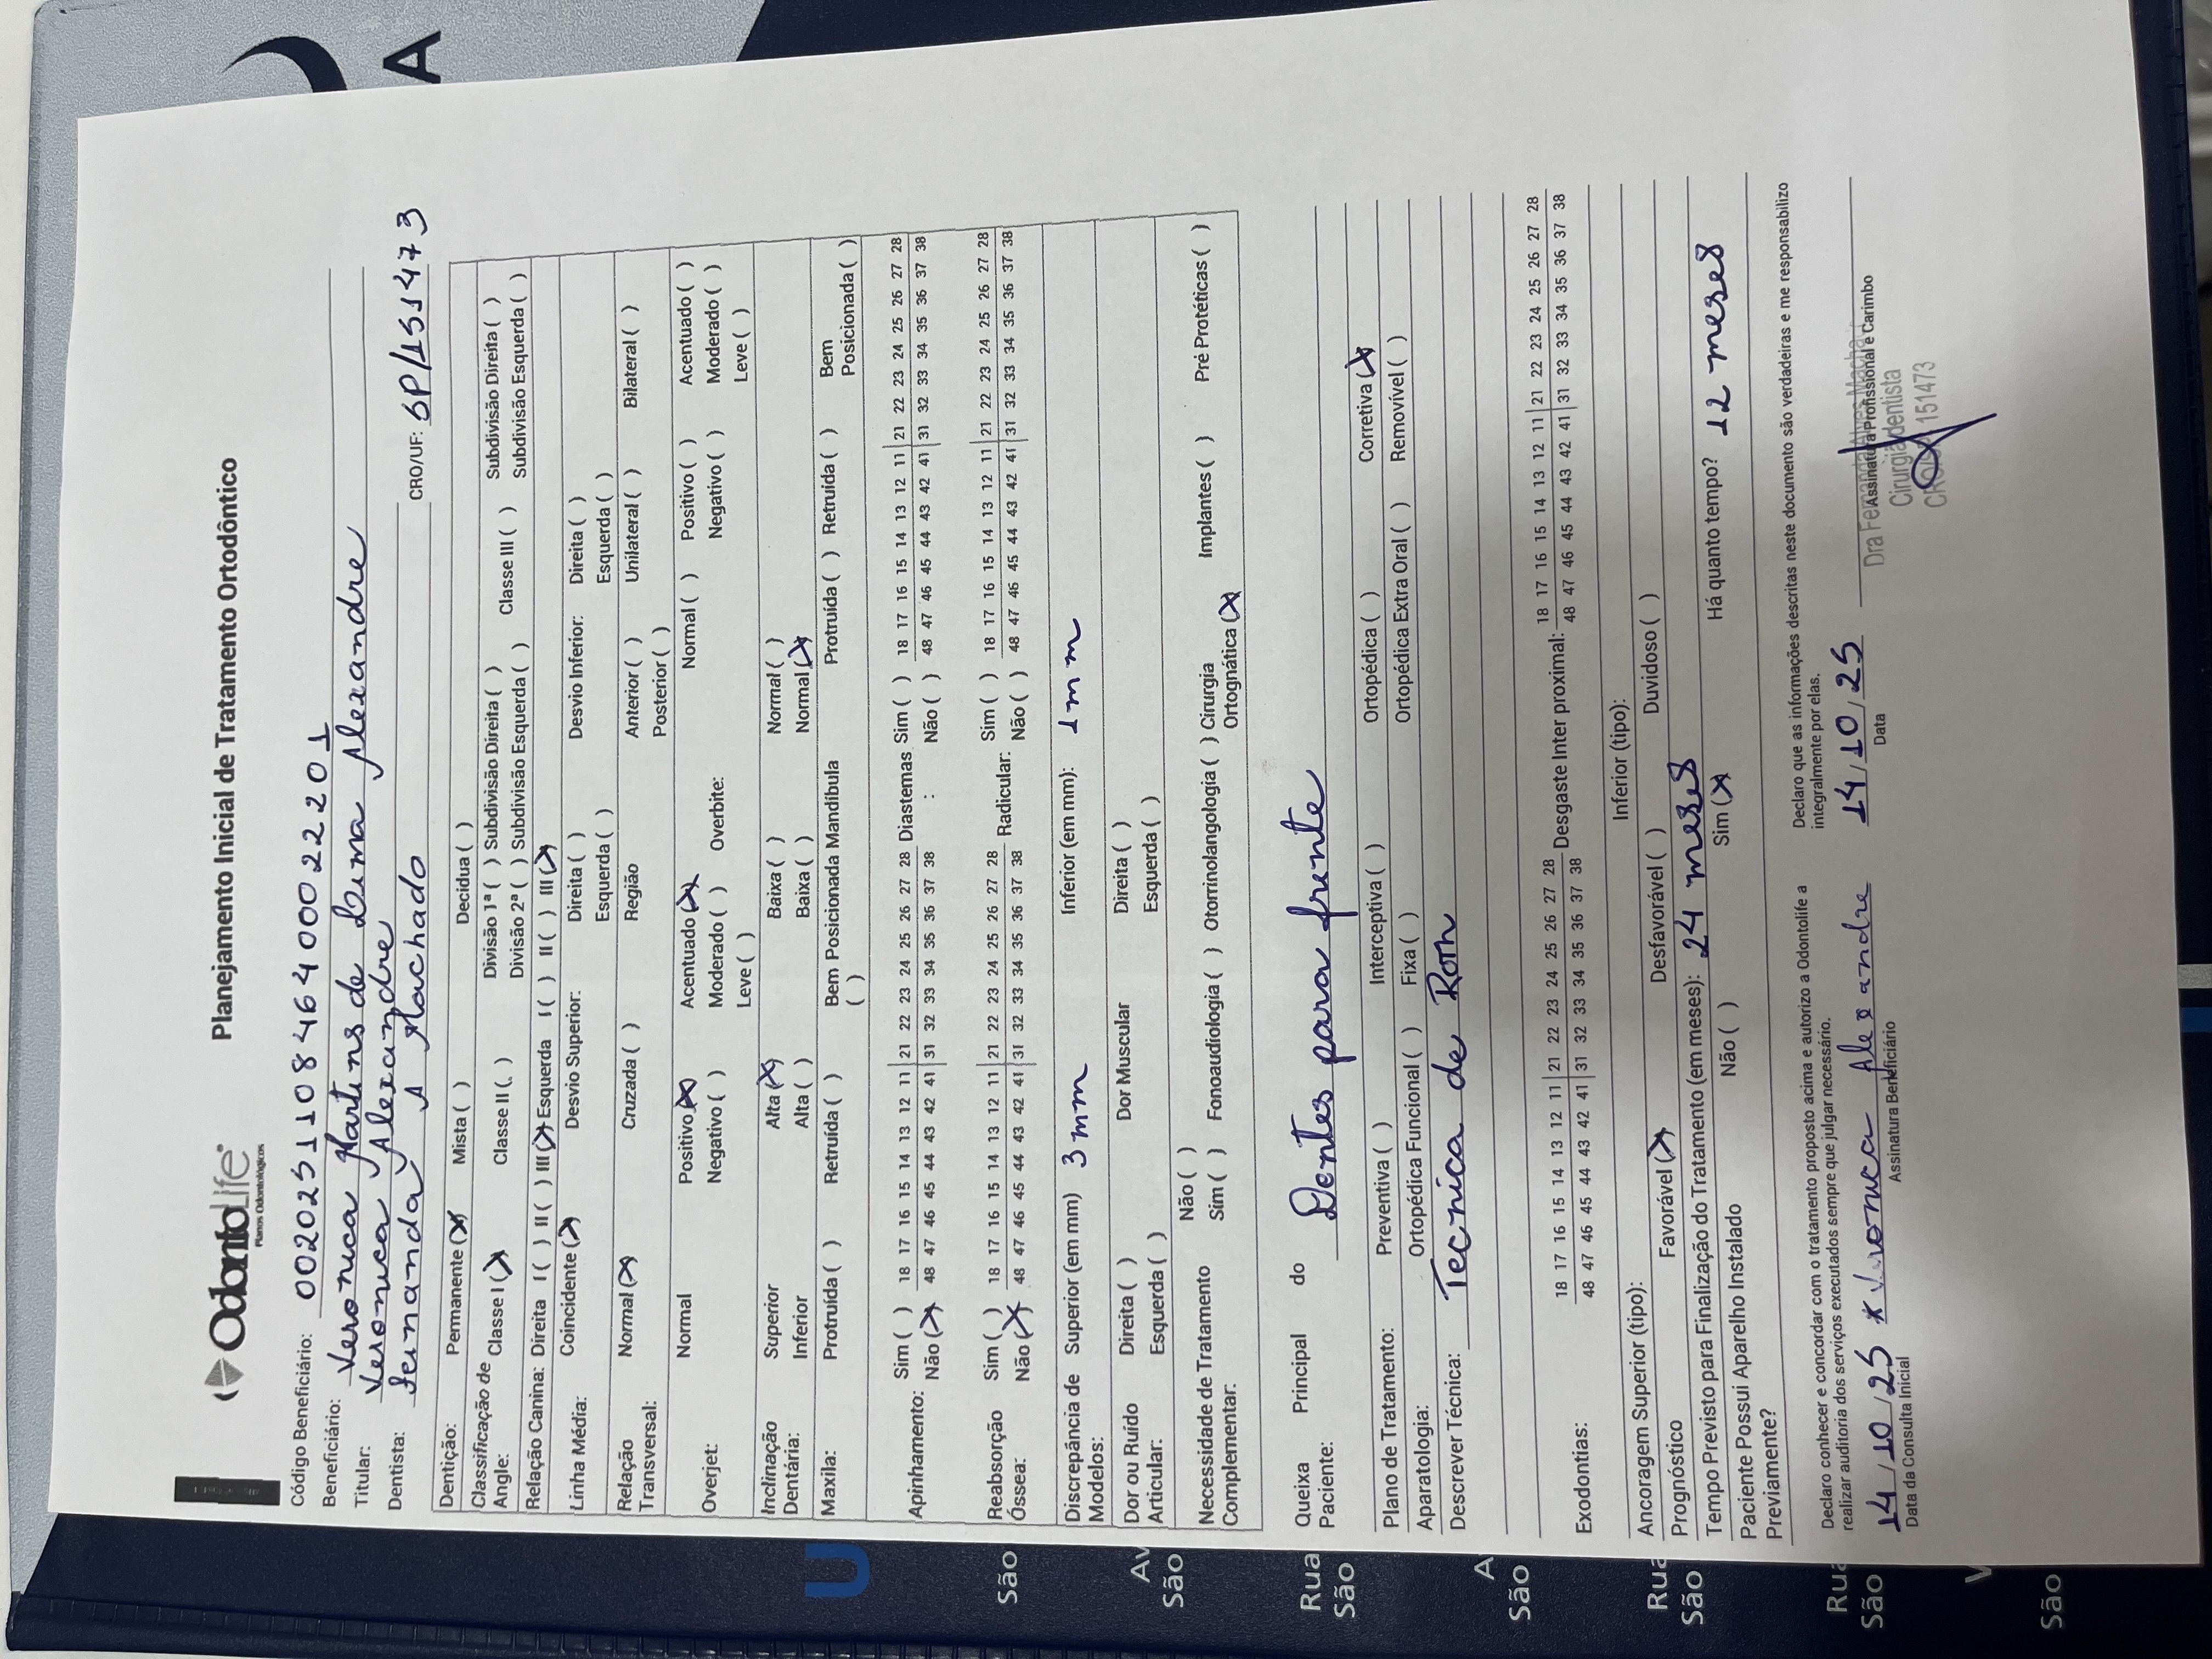 OdontoLife
Planos Odontológicos
Planejamento Inicial de Tratamento Ortodôntico
Código Beneficiário: 00202511084640002220 1
Beneficiário: Veronica Martins de Lima Alexandre
Titular: Veronica Alexandre
Dentista: Fernanda A Machado CRO/UF: SP/151473
Dentição: Permanente (X) Mista ( ) Decídua ( )
Classificação de Angle: Classe I (X) Classe II ( ) Divisão 1ª ( ) Subdivisão Direita ( ) Classe III ( ) Subdivisão Direita ( )
Divisão 2ª ( ) Subdivisão Esquerda ( ) Subdivisão Esquerda ( )
Relação Canina: Direita I ( ) II ( ) III (X) Esquerda I ( ) II ( ) III (X)
Linha Média: Coincidente (X) Desvio Superior: Direita ( ) Desvio Inferior: Direita ( )
Esquerda ( ) Esquerda ( )
Relação Transversal: Normal (X) Cruzada ( ) Região Anterior ( ) Unilateral ( ) Bilateral ( )
Posterior ( )
Overjet: Normal Positivo (X) Acentuado (X) Overbite: Normal ( ) Positivo ( ) Acentuado ( )
Negativo ( ) Moderado ( ) Negativo ( ) Moderado ( )
Leve ( ) Leve ( )
Inclinação Dentária: Superior Alta (X) Baixa ( ) Normal ( )
Inferior Alta ( ) Baixa ( ) Normal (X)
Maxila: Protruída ( ) Retruída ( ) Bem Posicionada ( ) Mandíbula Protruída ( ) Retruída ( ) Bem Posicionada ( )
Apinhamento: Sim ( ) 18 17 16 15 14 13 12 11 | 21 22 23 24 25 26 27 28 Diastemas : Sim ( ) 18 17 16 15 14 13 12 11 | 21 22 23 24 25 26 27 28
Não (X) 48 47 46 45 44 43 42 41 | 31 32 33 34 35 36 37 38 Não ( ) 48 47 46 45 44 43 42 41 | 31 32 33 34 35 36 37 38
Reabsorção Óssea: Sim ( ) 18 17 16 15 14 13 12 11 | 21 22 23 24 25 26 27 28 Radicular: Sim ( ) 18 17 16 15 14 13 12 11 | 21 22 23 24 25 26 27 28
Não (X) 48 47 46 45 44 43 42 41 | 31 32 33 34 35 36 37 38 Não ( ) 48 47 46 45 44 43 42 41 | 31 32 33 34 35 36 37 38
Discrepância de Modelos: Superior (em mm) 3 mm Inferior (em mm): 1 mm
Dor ou Ruído Articular: Direita ( ) Dor Muscular Direita ( )
Esquerda ( ) Esquerda ( )
Necessidade de Tratamento Complementar: Não ( )
Sim ( ) Fonoaudiologia ( ) Otorrinolangologia ( ) Cirurgia Ortognática (X) Implantes ( ) Pré Protéticas ( )
Queixa Principal do Paciente: Dentes para frente
Plano de Tratamento: Preventiva ( ) Interceptiva ( ) Ortopédica ( ) Corretiva (X)
Aparatologia: Ortopédica Funcional ( ) Fixa ( ) Ortopédica Extra Oral ( ) Removível ( )
Descrever Técnica: Tecnica de Roth
Exodontias: 18 17 16 15 14 13 12 11 | 21 22 23 24 25 26 27 28 Desgaste Inter proximal: 18 17 16 15 14 13 12 11 | 21 22 23 24 25 26 27 28
48 47 46 45 44 43 42 41 | 31 32 33 34 35 36 37 38 48 47 46 45 44 43 42 41 | 31 32 33 34 35 36 37 38
Ancoragem Superior (tipo): Inferior (tipo):
Prognóstico Favorável (X) Desfavorável ( ) Duvidoso ( )
Tempo Previsto para Finalização do Tratamento (em meses): 24 meses
Paciente Possui Aparelho Instalado Previamente? Não ( ) Sim (X) Há quanto tempo? 12 meses
Declaro conhecer e concordar com o tratamento proposto acima e autorizo a Odontolife a
realizar auditoria dos serviços executados sempre que julgar necessário.
Declaro que as informações descritas neste documento são verdadeiras e me responsabilizo
integralmente por elas.
14/10/25 x Veronica Alexandre 14/10/25
Data da Consulta Inicial Assinatura Beneficiário Data Assinatura Profissional e Carimbo
Cirurgiã dentista
151473
A
U
São
Av
São
Rua
São
A
São
Rua
São
Rua
São
V
São